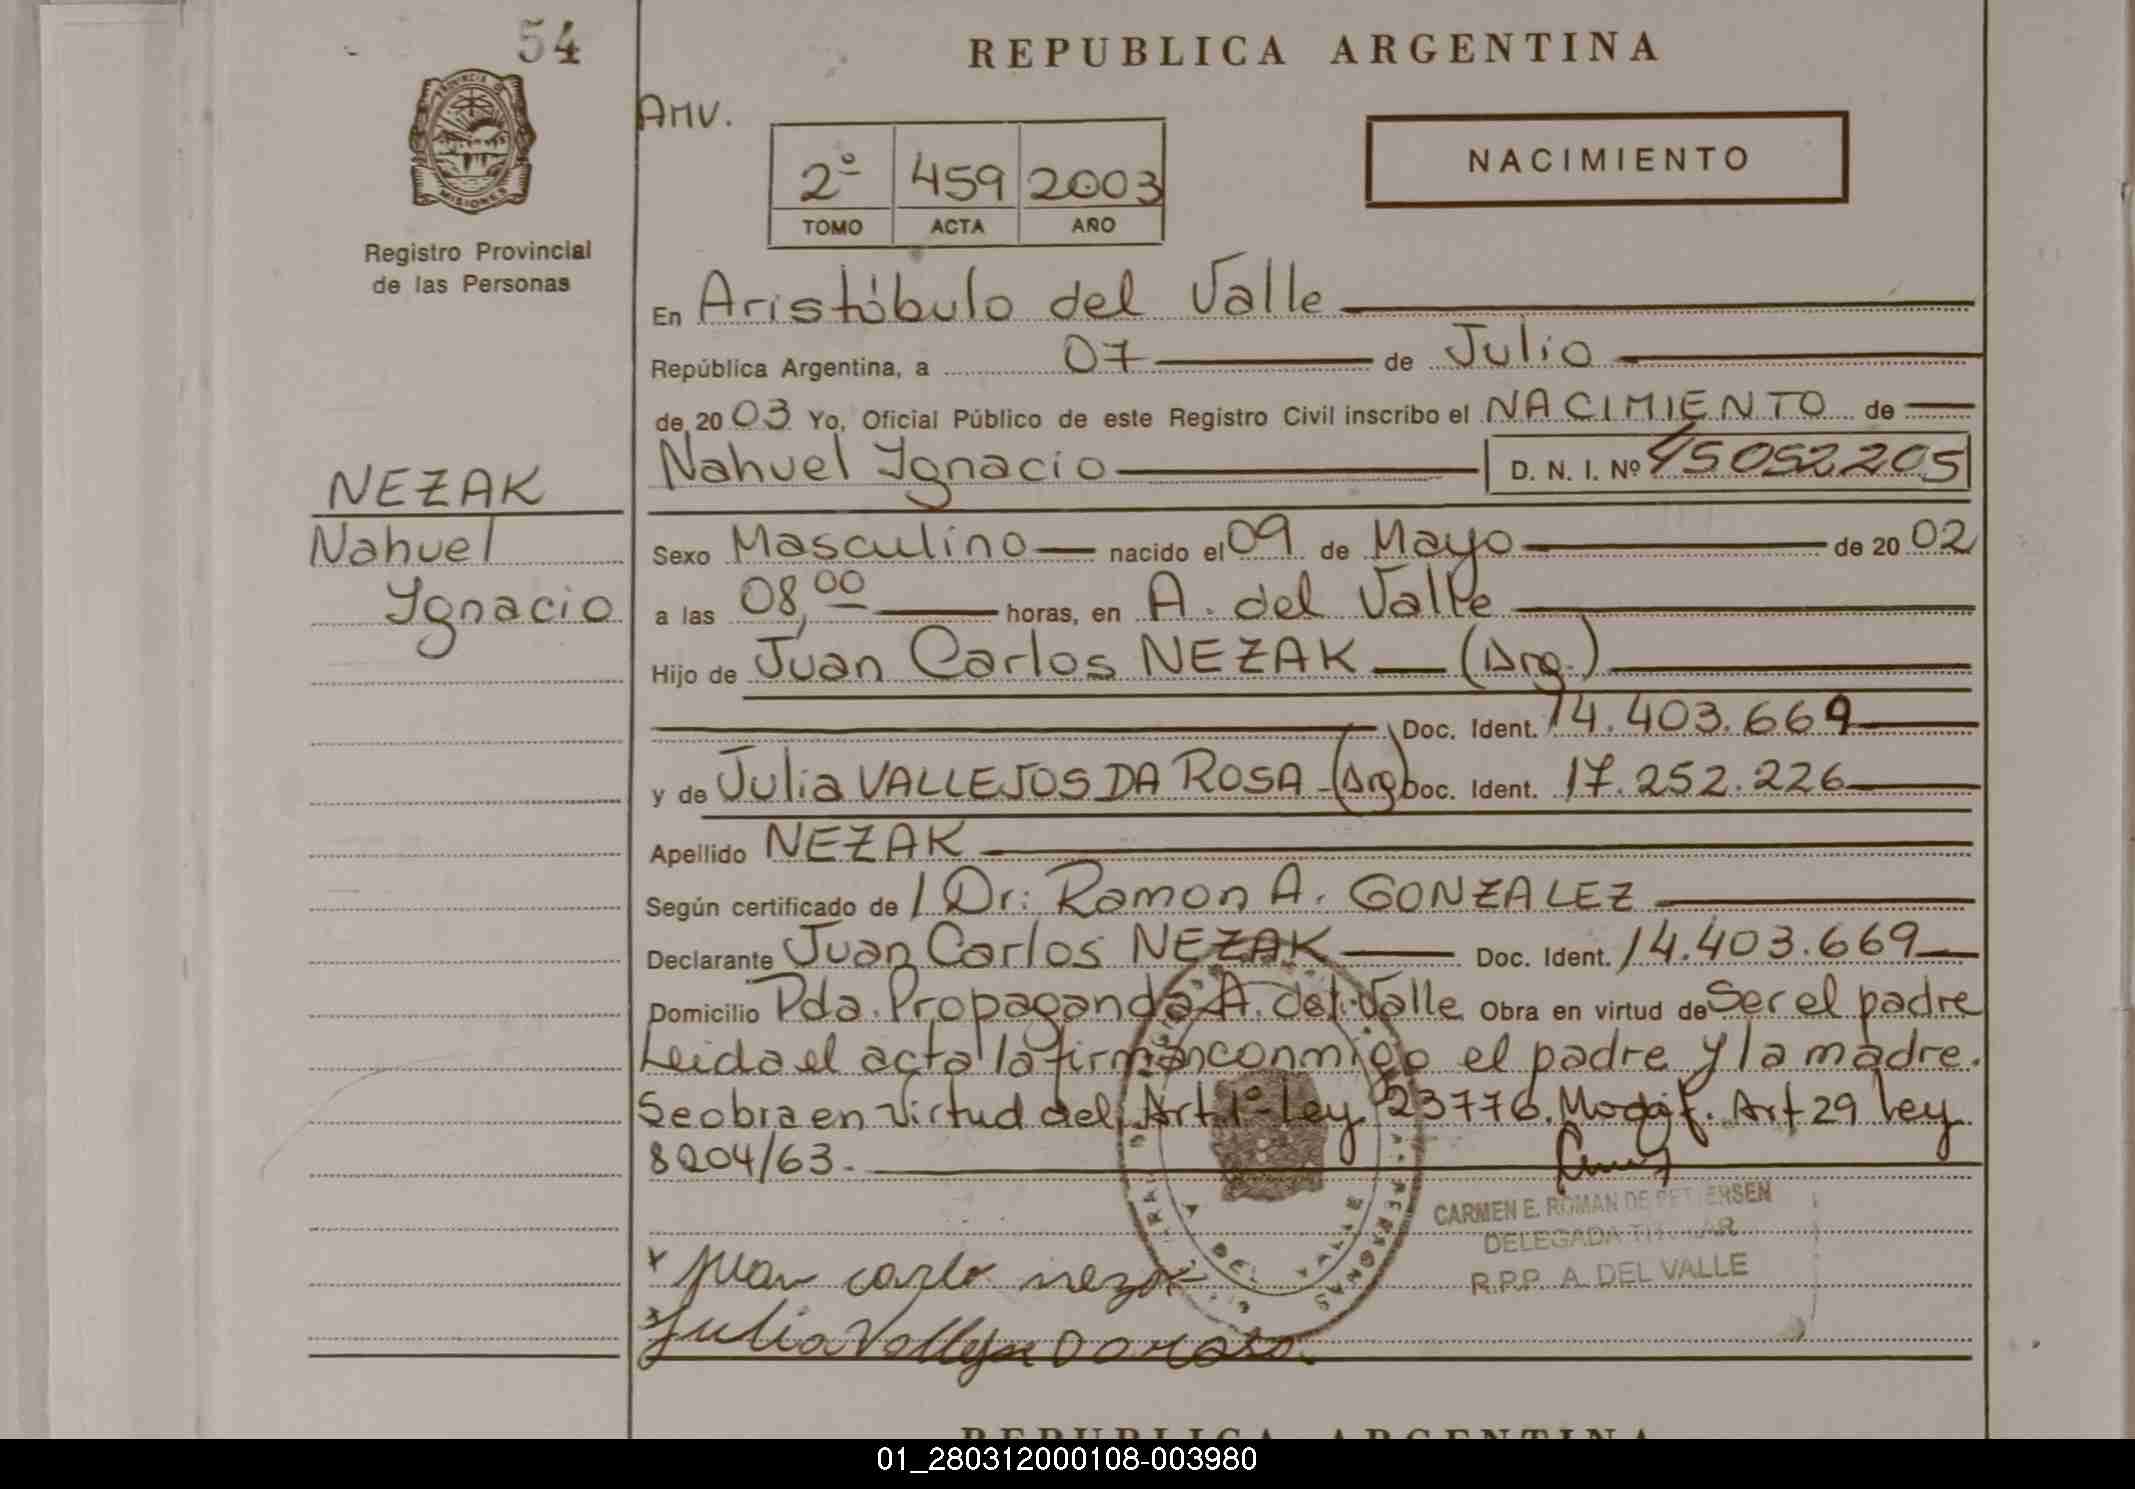 54
REPUBLICA ARGENTINA
PROVINCIA DE
MISIONES
Registro Provincial
de las Personas
AMV.
2º 459 2003
TOMO ACTA AÑO
NACIMIENTO
En Aristóbulo del Valle
República Argentina, a 07 de Julio
de 20 03 Yo, Oficial Público de este Registro Civil inscribo el NACIMIENTO de
NEZAK
Nahuel
Ygnacio
Nahuel Ygnacio D. N. I. Nº 45052205
Sexo Masculino nacido el 09 de Mayo de 20 02
a las 08,00 horas, en A. del Valle
Hijo de Juan Carlos NEZAK (Arg.)
Doc. Ident. 14.403.669
y de Julia VALLEJOS DA ROSA - (Arg) Doc. Ident. 17.252.226
Apellido NEZAK
Según certificado de / Dr: Ramon A. GONZALEZ
Declarante Juan Carlos NEZAK Doc. Ident. 14.403.669
Domicilio Pda. Propaganda A. del Valle Obra en virtud de Ser el padre
Leida el acta la firman conmigo el padre y la madre.
Se obra en virtud del Art 1º ley 23776. Modif. Art 29 ley
8204/63.-
CARMEN E. ROMAN DE PETTERSEN
DELEGADA TITULAR
R.P.P. A. DEL VALLE
x Juan carlo nezak
x Julia Vallejos Da rosa.
REPUBLICA ARGENTINA
01_280312000108-003980